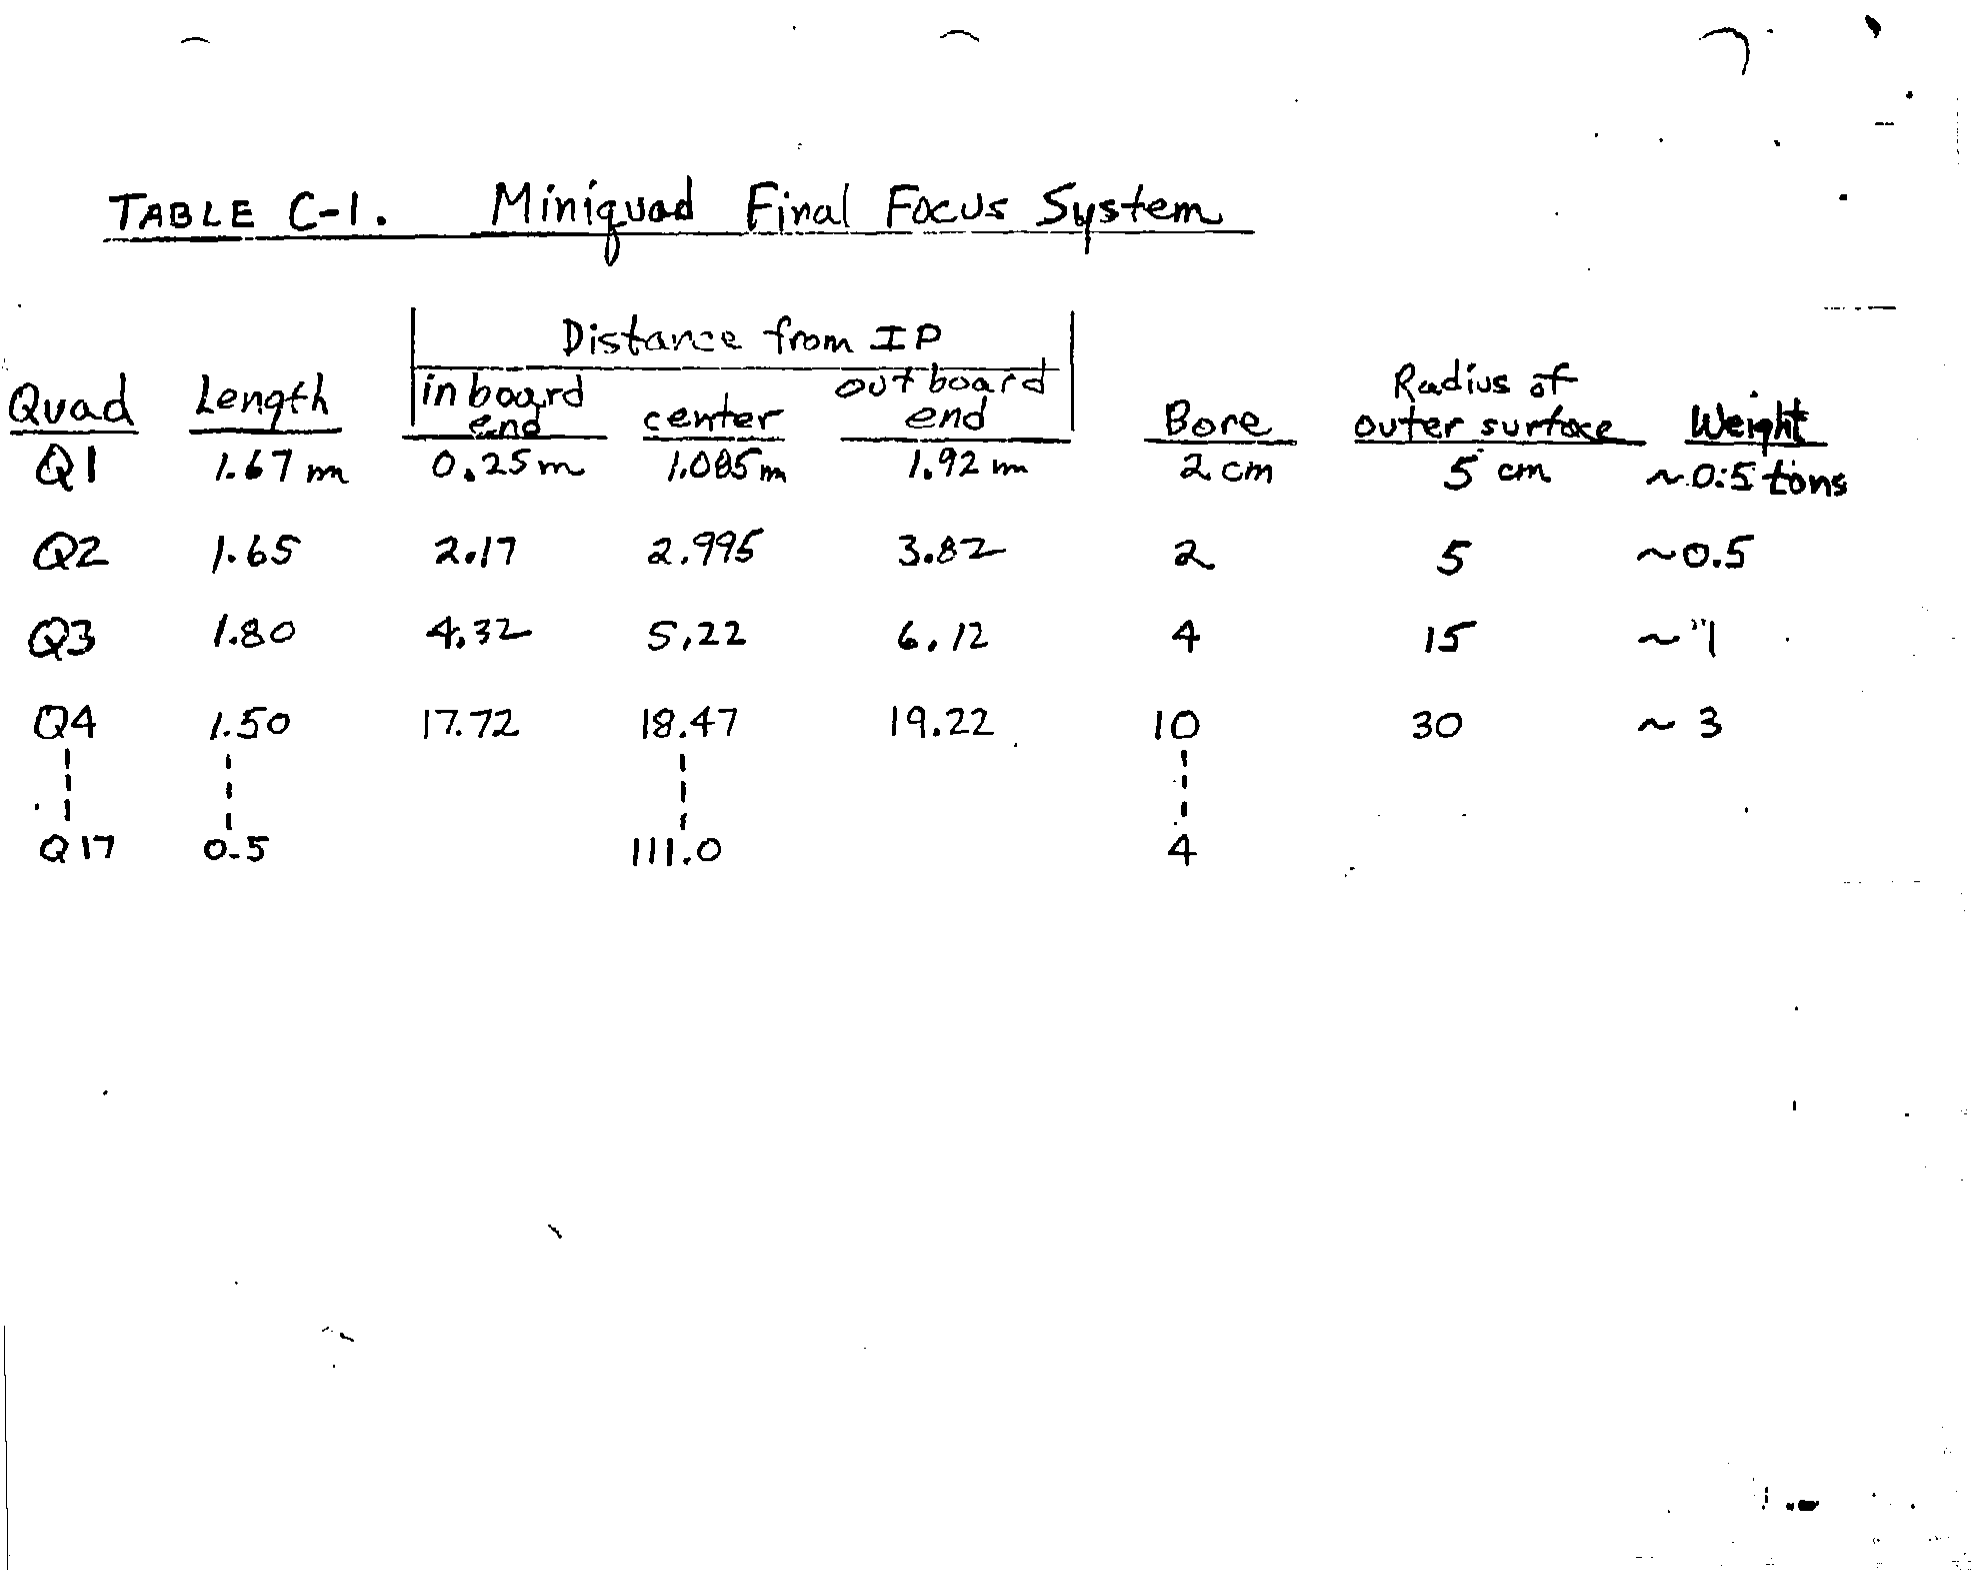 TABLE C-1. Miniquad Final Focus System
Distance from IP
Quad Length inboard end center outboard end Bore Radius of outer surface Weight
Q1 1.67 m 0.25 m 1.085 m 1.92 m 2 cm 5 cm ~0.5 tons
Q2 1.65 2.17 2.995 3.82 2 5 ~0.5
Q3 1.80 4.32 5.22 6.12 4 15 ~1
Q4 1.50 17.72 18.47 19.22 10 30 ~3
Q17 0.5 111.0 4